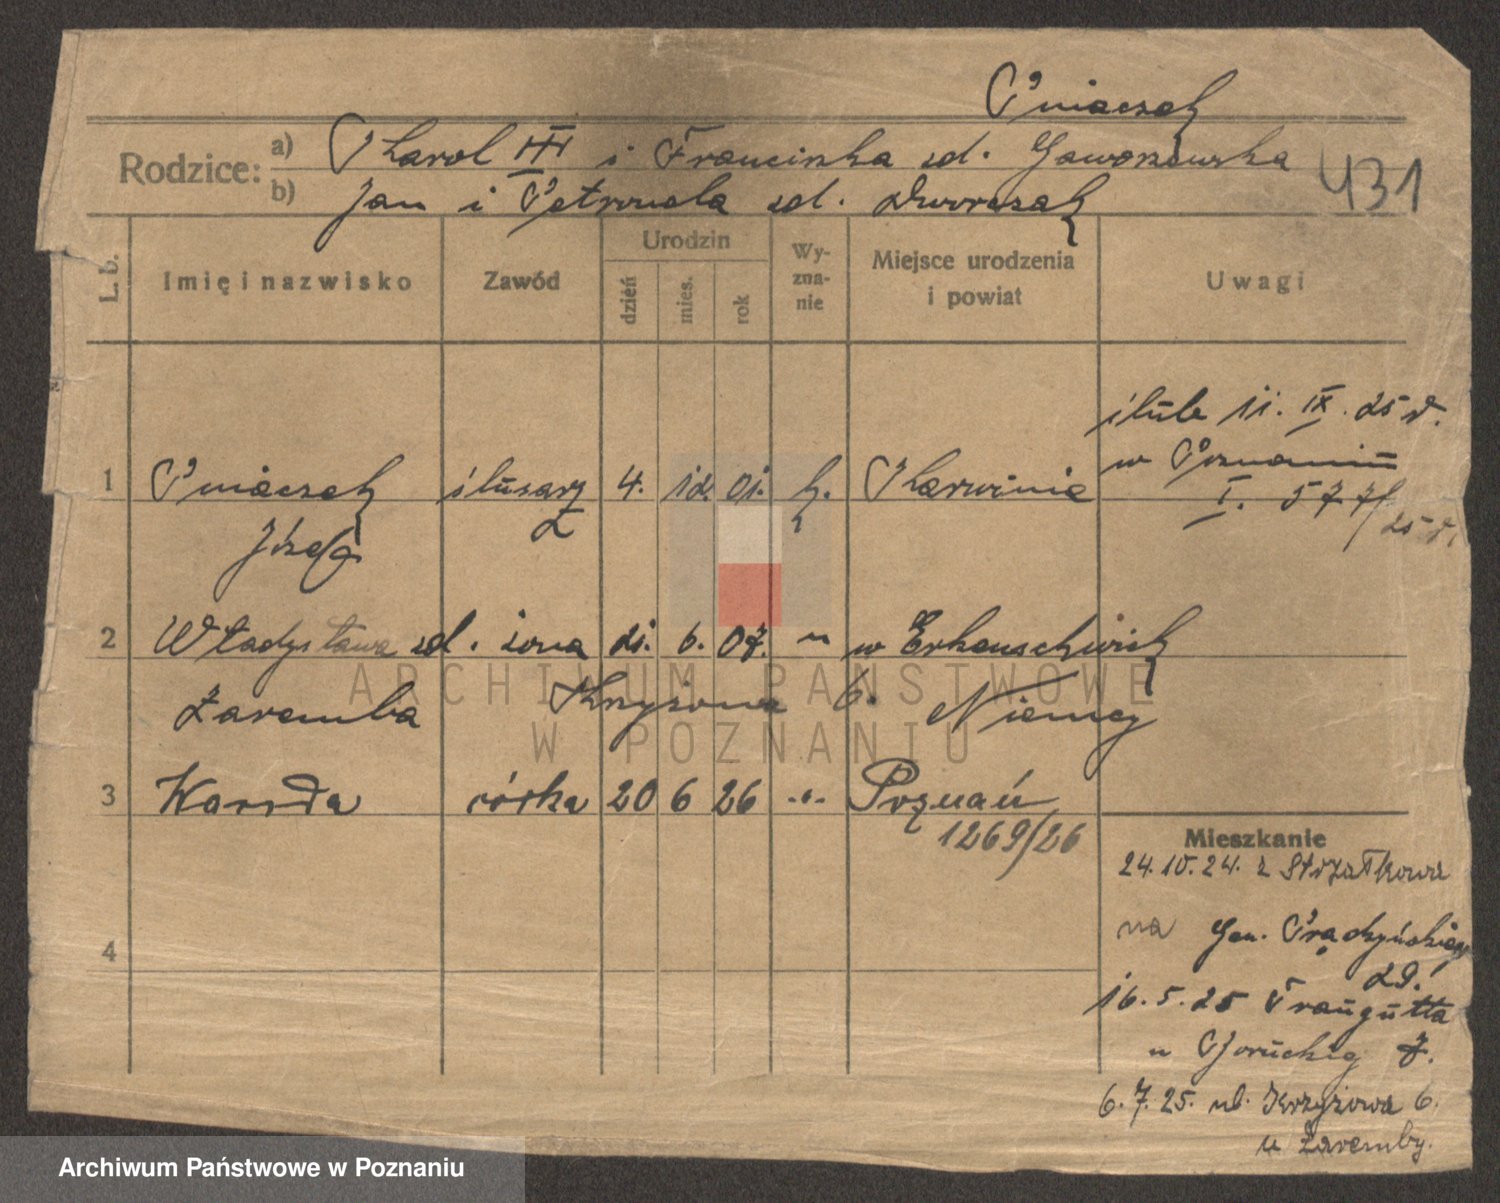 Pniaczak
Rodzice:
a) Karol i Franciszka zd. Gaworzewska
b) Jan i Petronela zd. Dworczak
431
L. b.
Imię i nazwisko
Zawód
Urodzin
dzień
mies.
rok
Wy-
zna-
nie
Miejsce urodzenia
i powiat
Uwagi
ślub 11. IX. 25 r.
w Poznaniu
I. 577/25 r.
1 Pniaczak ślusarz 4. 12. 01. k. Karwinie
Józef
2 Władysława zd. żona 21. 6. 07. " w
Zaremba Krzyżowa 6. Niemcy
3 Wanda córka 20 6 26 -"- Poznań
1269/26
4
Mieszkanie
24.10.24. z Strzałkowa
na Gen. Prądzyńskiego
29.
16.5.25 Traugutta
u 7.
6.7.25. ul. Krzyżowa 6.
u Zaremby.
ARCHIWUM PAŃSTWOWE
W POZNANIU
Archiwum Państwowe w Poznaniu